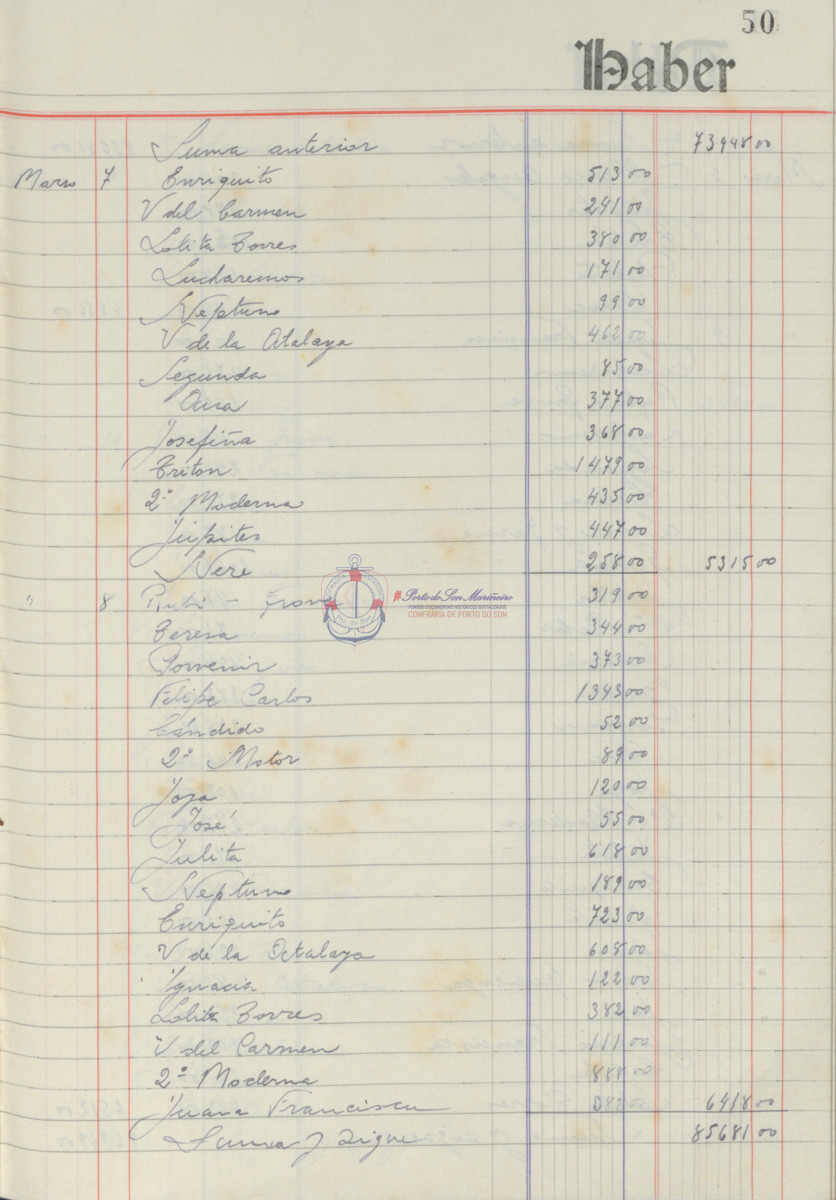 50
Haber
Suma anterior 73948 00
Marzo 7 Enriquito 513 00
V del Carmen 241 00
Lolita Torres 380 00
Lucharemos 171 00
Neptuno 99 00
V de la Atalaya 462 00
Segunda 85 00
377 00
Josefiña 368 00
Triton 1479 00
2ª Moderna 435 00
Jupiter 447 00
Nere 258 00 5315 00
" 8 Rubi - 319 00
Teresa 344 00
Porvenir 373 00
Felipe Carlos 1343 00
Cándido 52 00
2º Motor 89 00
Joya 120 00
José 55 00
Julita 618 00
Neptuno 189 00
Enriquito 723 00
V de la Atalaya 608 00
Ignacia 122 00
Lolita Torres 382 00
V del Carmen 111 00
2ª Moderna 888 00
Juana Francisca 082 00 6418 00
Suma y Sigue 85681 00
#Porto do Son Mariñeiro
CONFRARÍA DE PORTO DO SON